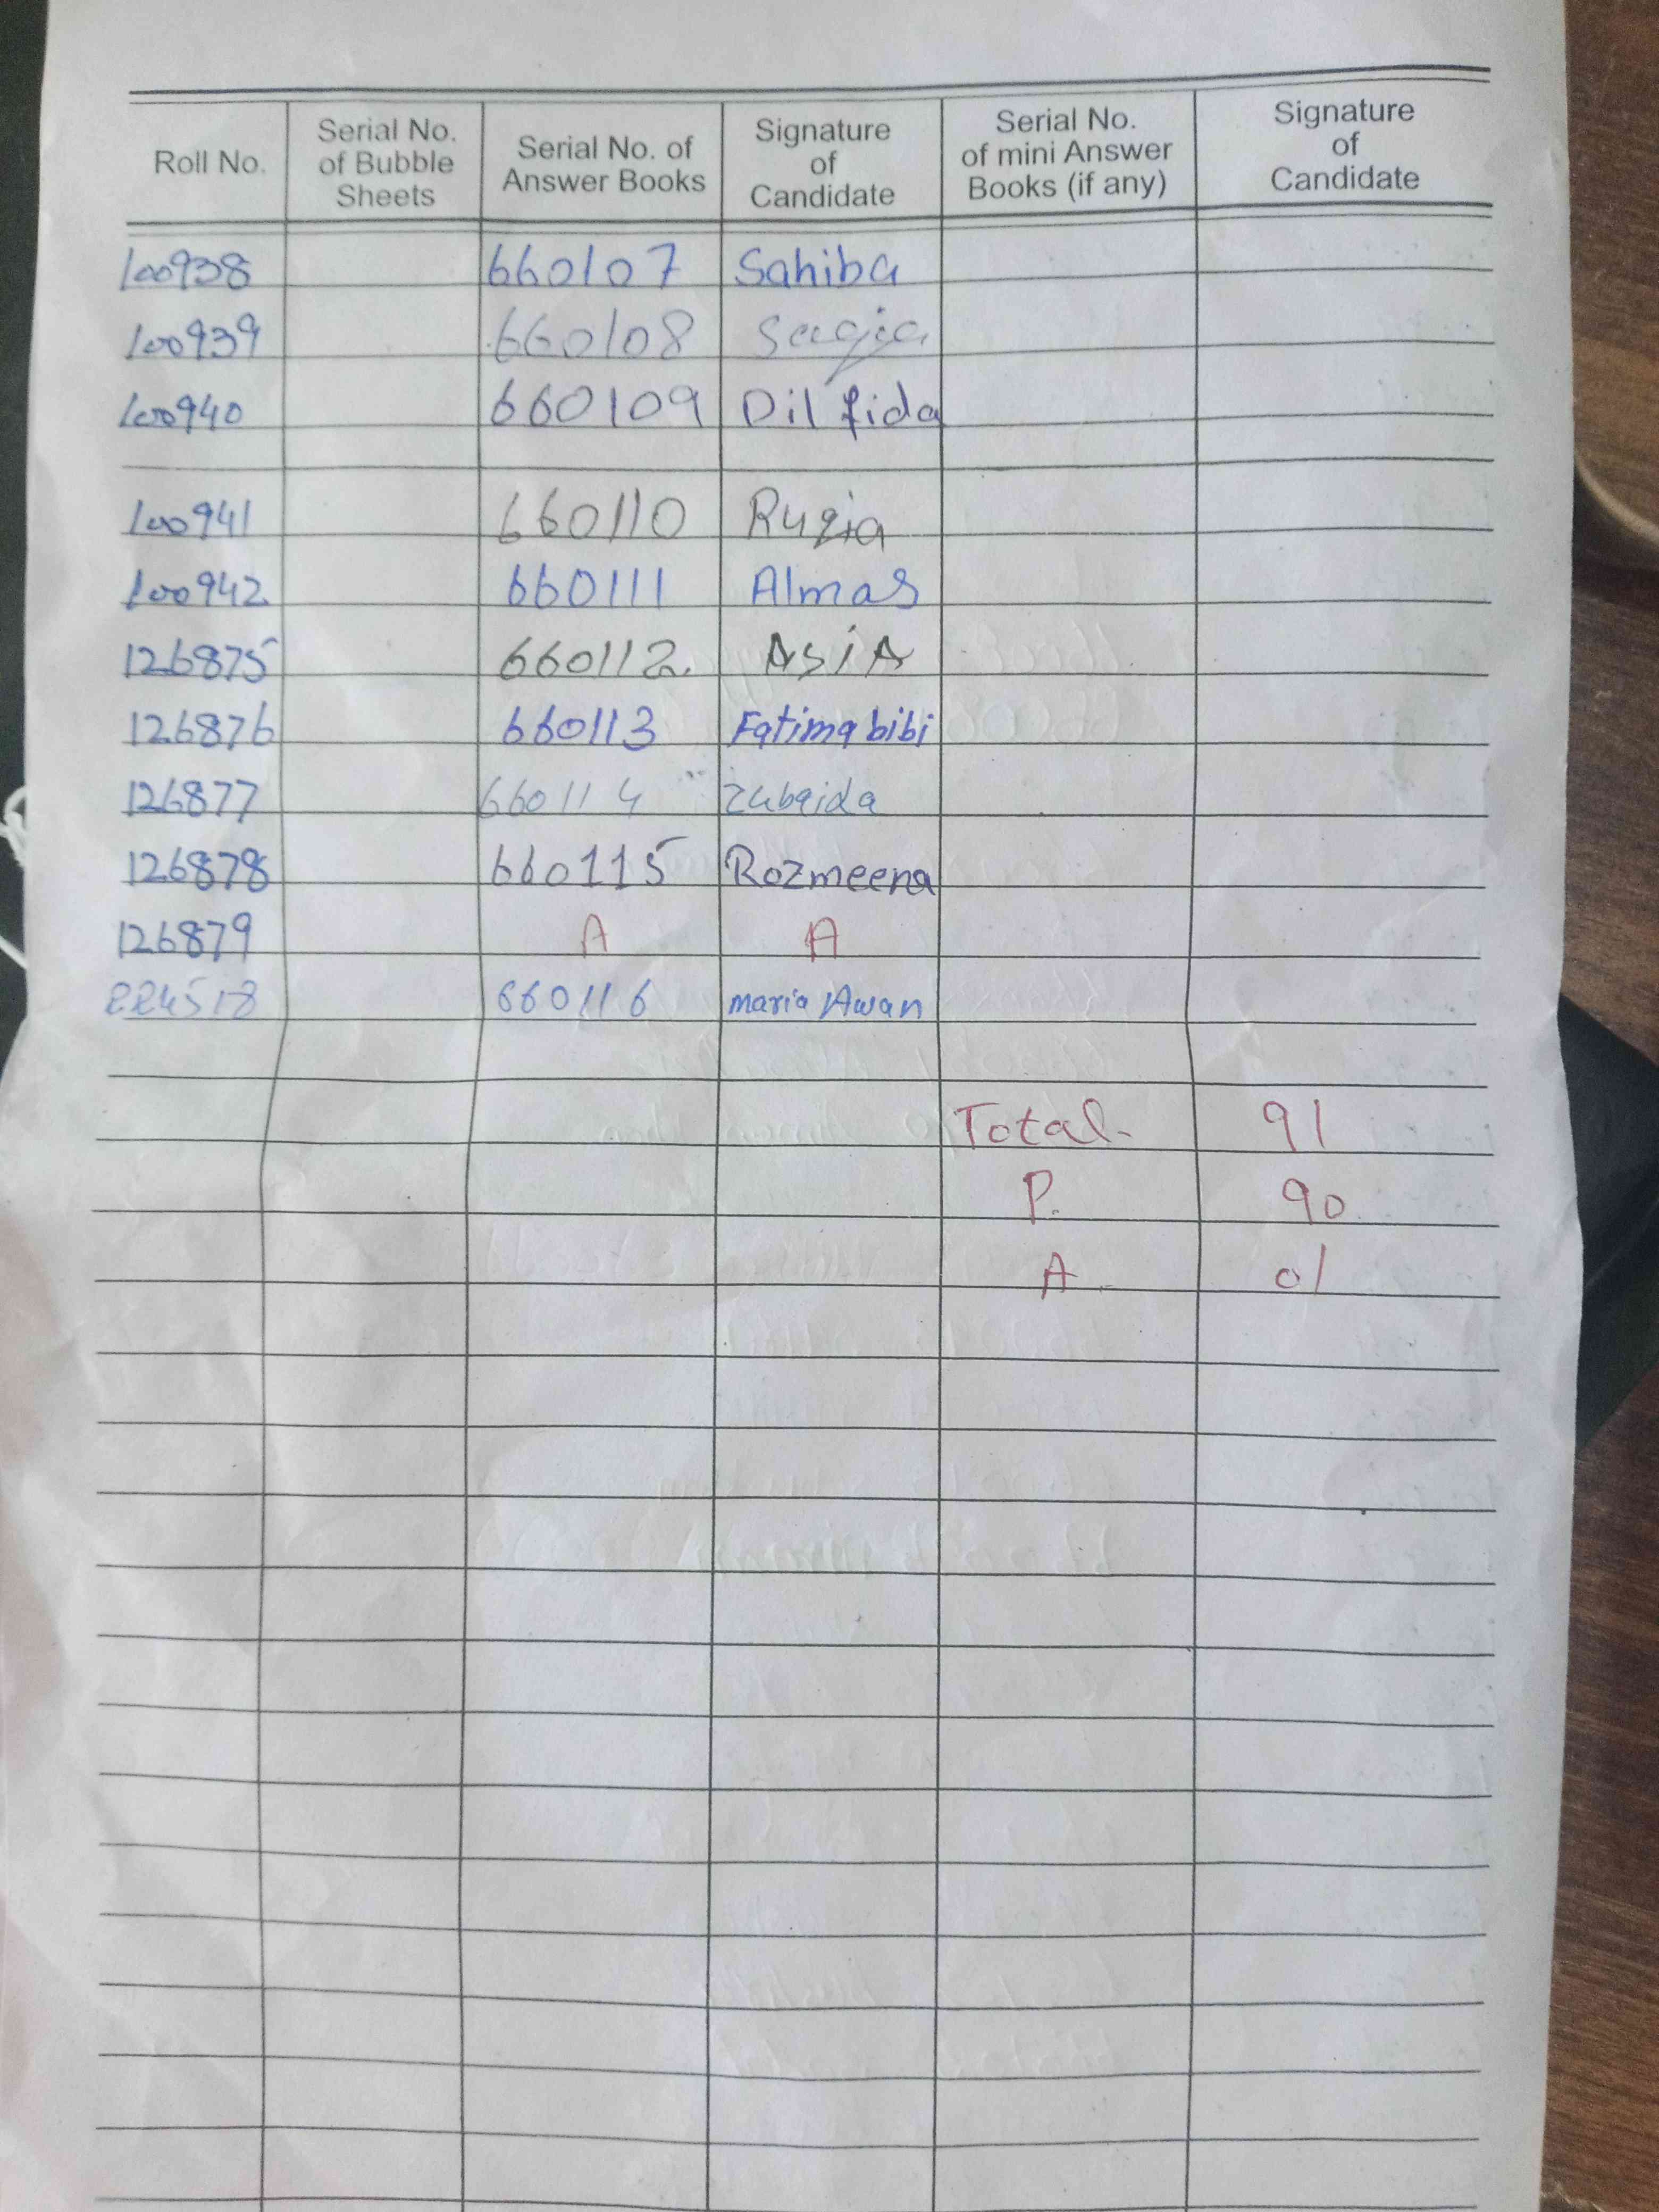 Roll No. Serial No. of Bubble Sheets Serial No. of Answer Books Signature of Candidate Serial No. of mini Answer Books (if any) Signature of Candidate
100938 660107 Sahiba
100939 660108
100940 660109 Dil fida
100941 660110 Ruqia
100942 660111 Almas
126875 660112 ASiA
126876 660113 Fatima bibi
126877 660114 Zubaida
126878 660115 Rozmeena
126879 A A
224518 660116 maria Awan
Total 91
P. 90
A 01